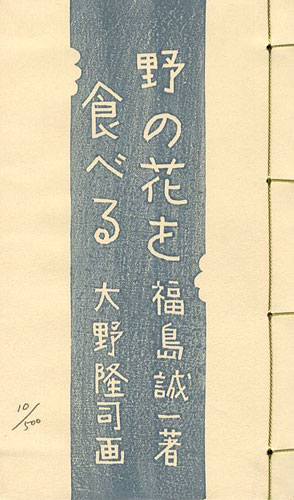 野の花を
食べる
福島誠一著
大野隆司画
10/500